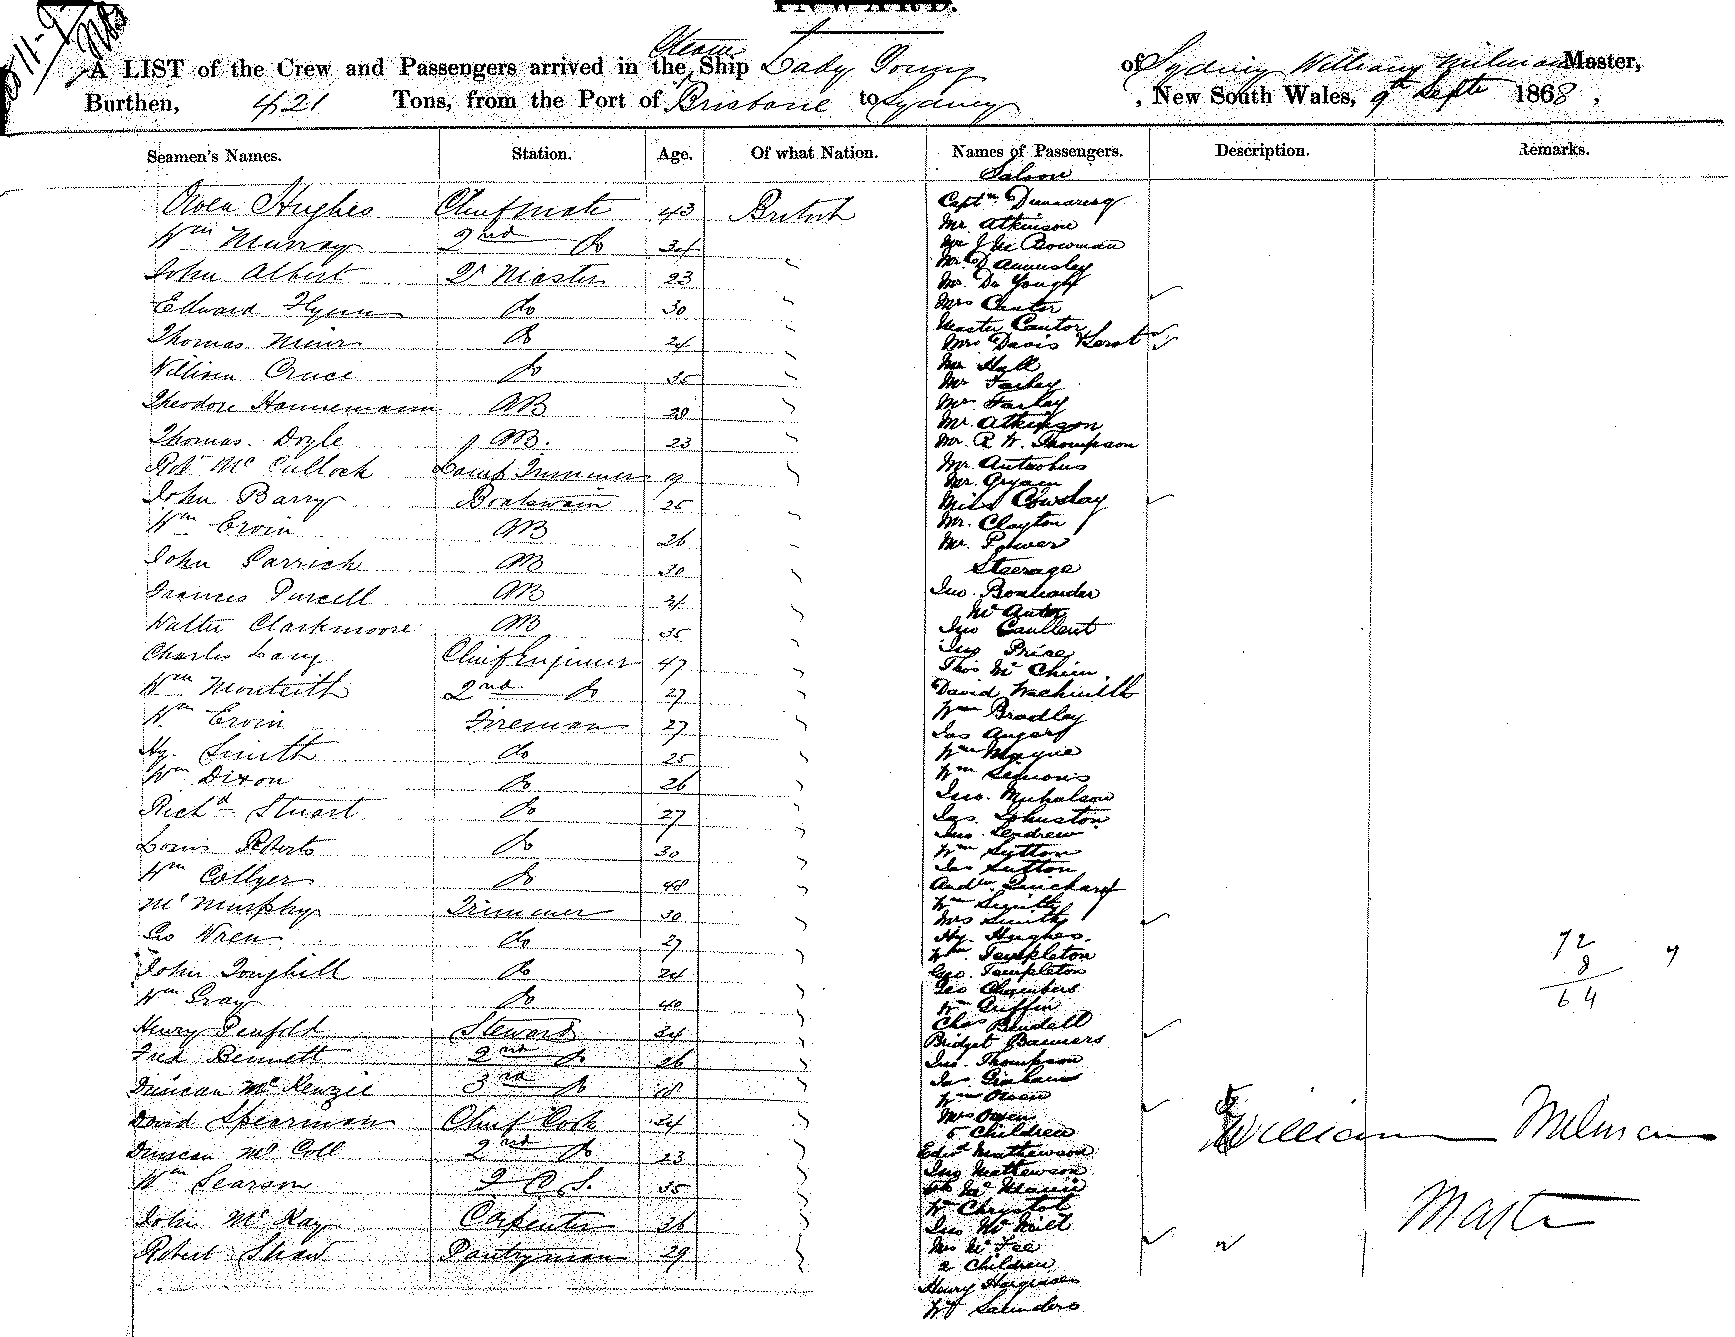 INWARD.
A LIST of the Crew and Passengers arrived in the Steam Ship Lady Young of Sydney William Milman Master,
Burthen, 421 Tons, from the Port of Brisbane to Sydney, New South Wales, 9th Septr 1868,
Seamen's Names. Station. Age. Of what Nation. Names of Passengers. Description. Remarks.
Owen Hughes Chief mate 43 British
Wm Murray 2nd do 34
John Albert Qr Master 23
Edward Flynn do 30
Thomas Muir do 24
William Cruce do 35
Theodore Hannemann AB 28
Thomas Doyle AB. 23
Robt McCulloch Lamp Trimmer 19
John Barry Boatswain 25
Wm Ervin AB 26
John Parrich AB 30
Frances Purcell AB 24
Walter Clarkmoore AB 35
Charles Lang Chief Engineer 47
Wm Monteith 2nd do 27
Wm Ervin Fireman 27
Hy. Smith do 25
Wm Dixon do 26
Richd Stuart do 27
Louis Roberts do 30
Wm Collyer do 48
Mc Murphy Trimmer 30
Geo Wren do 27
John Tonghill do 24
Wm Gray do 40
Henry Penfold Steward 34
Fred Bennett 2nd do 26
Duncan McKenzie 3rd do 18
David Spearman Chief Cook 24
Duncan McColl 2nd do 23
Wm Searson F C S. 35
John McKay Carpenter 26
Robert Shaw Pantryman 29
Saloon
Captn Dumaresq
Mr. Atkinson
Mr J Mc Bowman
Mr. D Annesley
Mr. De Yough
Mrs Cantor
Master Cantor
Mrs Davis & Servt
Mr Hall
Mr Farley
Mr Farley
Mr. Atkinson
Mr. R W. Thompson
Mr. Antrobus
Mr. Gryam
Miss Cowslay
Mr. Clayton
Mr. Power
Steerage
Jno. Bombarder
Mr Anton
Jno Caullent
Jno Price
Thos McChien
David
Wm Bradley
Jas Angers
Wm Mayne
Wm Simons
Jno. Michalson
Jas. Johnston
Jno. Lendrew
Wm Sytton
Jas Sutton
Andw. Quichard
Wm Smith
Mrs Smith
Hy. Hughes.
Wm Templeton
Geo. Templeton
Geo Chambers
Wm Griffin
Chas Bendall
Bridget Banners
Jno. Thompson
Jas. Graham
Wm Owen
Mrs Owen
5 Children
Edwd Matthewson
Jno Mathewson
Wm Christot
Jno McNilt
Mrs McFee
2 Children
Henry Horgensen
Wm Saunders
72
8
64
William Milman
Master